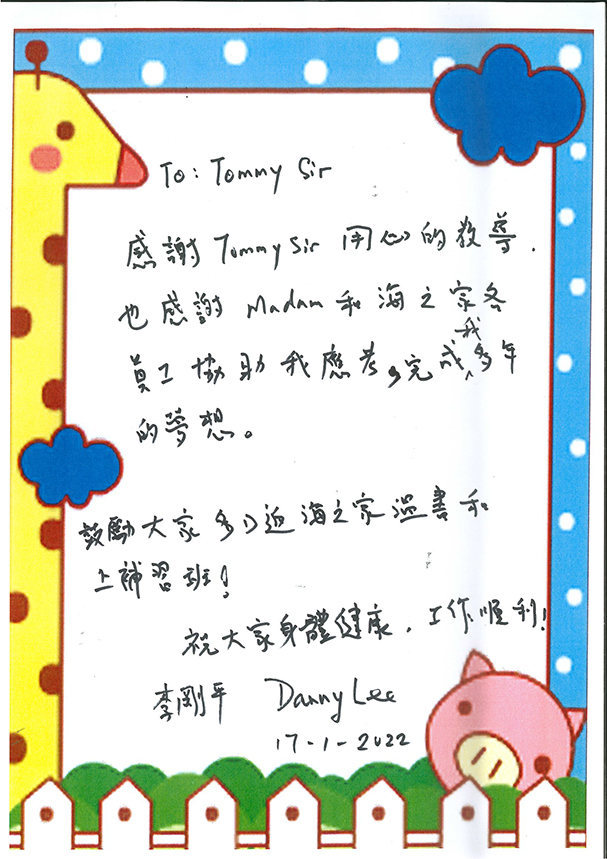 To: Tommy Sir
感謝 Tommy Sir 用心的教導.
也感謝 Madam 和海之家各
員工協助我應考,完成我多年
的夢想。
鼓勵大家多D返海之家温書和
上補習班!
祝大家身體健康,工作順利!
李剛平 Danny Lee
17-1-2022